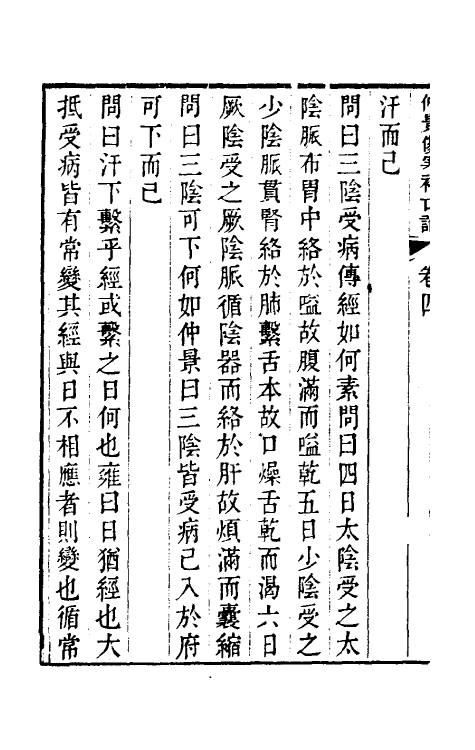 汗而已
問曰三陰受病傳經如何素問曰四日太陰受之太
陰脈布胃中絡於嗌故腹滿而嗌乾五日少陰受之
少陰脈貫腎絡於肺繫舌本故口燥舌乾而渴六日
厥陰受之厥陰脈循陰器而絡於肝故煩滿而囊縮
問曰三陰可下何如仲景曰三陰皆受病已入於府
可下而已
問曰汗下繫乎經或繫之日何也雍曰日猶經也大
抵受病皆有常變其經與日不相應者則變也循常